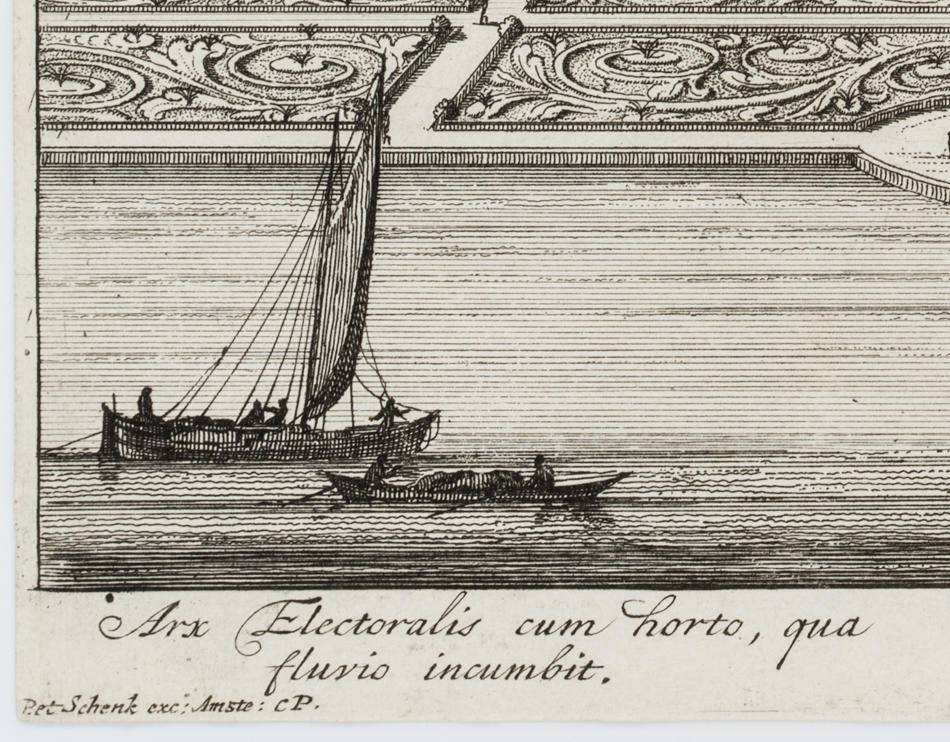 Arx Electoralis cum horto, qua
fluvio incumbit.
Pet Schenk exc: Amste: CP.